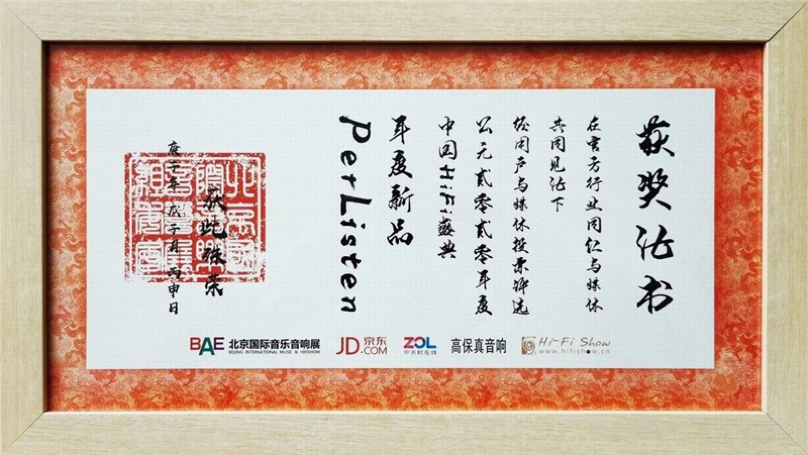 获奖证书
在官方行业同仁与媒体
共同见证下
经用户与媒体投票评选
公元贰零贰零年度
中国HiFi盛典
年度新品
PerListen
获此殊荣
庚子年 戊子月 丙申日
BAE 北京国际音乐音响展
BEIJING INTERNATIONAL MUSIC & HIFISHOW
JD 京东
.COM
ZOL
中关村在线
高保真音响
Hi-Fi Show
www.hifishow.cn